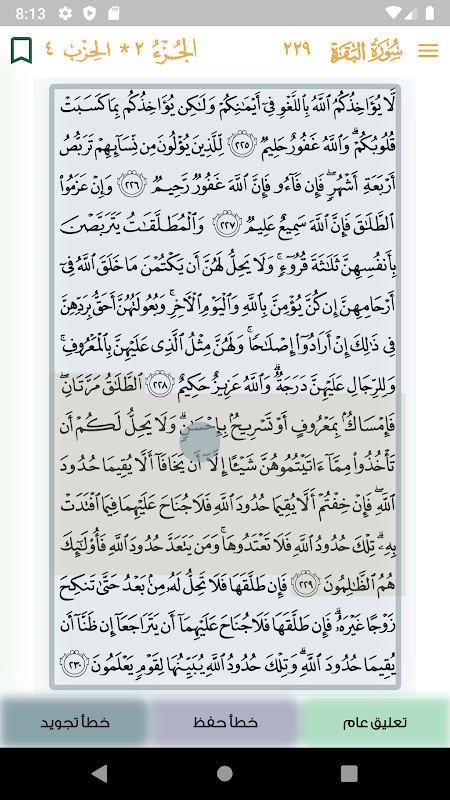 8:13
سُورَةُ البَقَرَةِ
٢٢٩
الجُزْءُ ٢ * الحِزْبُ ٤
لَّا يُؤَاخِذُكُمُ ٱللَّهُ بِٱللَّغْوِ فِىٓ أَيْمَـٰنِكُمْ وَلَـٰكِن يُؤَاخِذُكُم بِمَا كَسَبَتْ
قُلُوبُكُمْ ۗ وَٱللَّهُ غَفُورٌ حَلِيمٌ ٢٢٥ لِّلَّذِينَ يُؤْلُونَ مِن نِّسَآئِهِمْ تَرَبُّصُ
أَرْبَعَةِ أَشْهُرٍ ۖ فَإِن فَآءُو فَإِنَّ ٱللَّهَ غَفُورٌ رَّحِيمٌ ٢٢٦ وَإِنْ عَزَمُوا۟
ٱلطَّلَـٰقَ فَإِنَّ ٱللَّهَ سَمِيعٌ عَلِيمٌ ٢٢٧ وَٱلْمُطَلَّقَـٰتُ يَتَرَبَّصْنَ
بِأَنفُسِهِنَّ ثَلَـٰثَةَ قُرُوٓءٍ ۚ وَلَا يَحِلُّ لَهُنَّ أَن يَكْتُمْنَ مَا خَلَقَ ٱللَّهُ فِىٓ
أَرْحَامِهِنَّ إِن كُنَّ يُؤْمِنَّ بِٱللَّهِ وَٱلْيَوْمِ ٱلْـَٔاخِرِ ۚ وَبُعُولَتُهُنَّ أَحَقُّ بِرَدِّهِنَّ
فِى ذَٰلِكَ إِنْ أَرَادُوٓا۟ إِصْلَـٰحًا ۚ وَلَهُنَّ مِثْلُ ٱلَّذِى عَلَيْهِنَّ بِٱلْمَعْرُوفِ ۚ
وَلِلرِّجَالِ عَلَيْهِنَّ دَرَجَةٌ ۗ وَٱللَّهُ عَزِيزٌ حَكِيمٌ ٢٢٨ ٱلطَّلَـٰقُ مَرَّتَانِ ۖ
فَإِمْسَاكٌۢ بِمَعْرُوفٍ أَوْ تَسْرِيحٌۢ بِإِحْسَـٰنٍ ۗ وَلَا يَحِلُّ لَكُمْ أَن
تَأْخُذُوا۟ مِمَّآ ءَاتَيْتُمُوهُنَّ شَيْـًٔا إِلَّآ أَن يَخَافَآ أَلَّا يُقِيمَا حُدُودَ
ٱللَّهِ ۖ فَإِنْ خِفْتُمْ أَلَّا يُقِيمَا حُدُودَ ٱللَّهِ فَلَا جُنَاحَ عَلَيْهِمَا فِيمَا ٱفْتَدَتْ
بِهِۦ ۗ تِلْكَ حُدُودُ ٱللَّهِ فَلَا تَعْتَدُوهَا ۚ وَمَن يَتَعَدَّ حُدُودَ ٱللَّهِ فَأُو۟لَـٰٓئِكَ
هُمُ ٱلظَّـٰلِمُونَ ٢٢٩ فَإِن طَلَّقَهَا فَلَا تَحِلُّ لَهُۥ مِنۢ بَعْدُ حَتَّىٰ تَنكِحَ
زَوْجًا غَيْرَهُۥ ۗ فَإِن طَلَّقَهَا فَلَا جُنَاحَ عَلَيْهِمَآ أَن يَتَرَاجَعَآ إِن ظَنَّآ أَن
يُقِيمَا حُدُودَ ٱللَّهِ ۗ وَتِلْكَ حُدُودُ ٱللَّهِ يُبَيِّنُهَا لِقَوْمٍ يَعْلَمُونَ ٢٣٠
تعليق عام
خطأ حفظ
خطأ تجويد